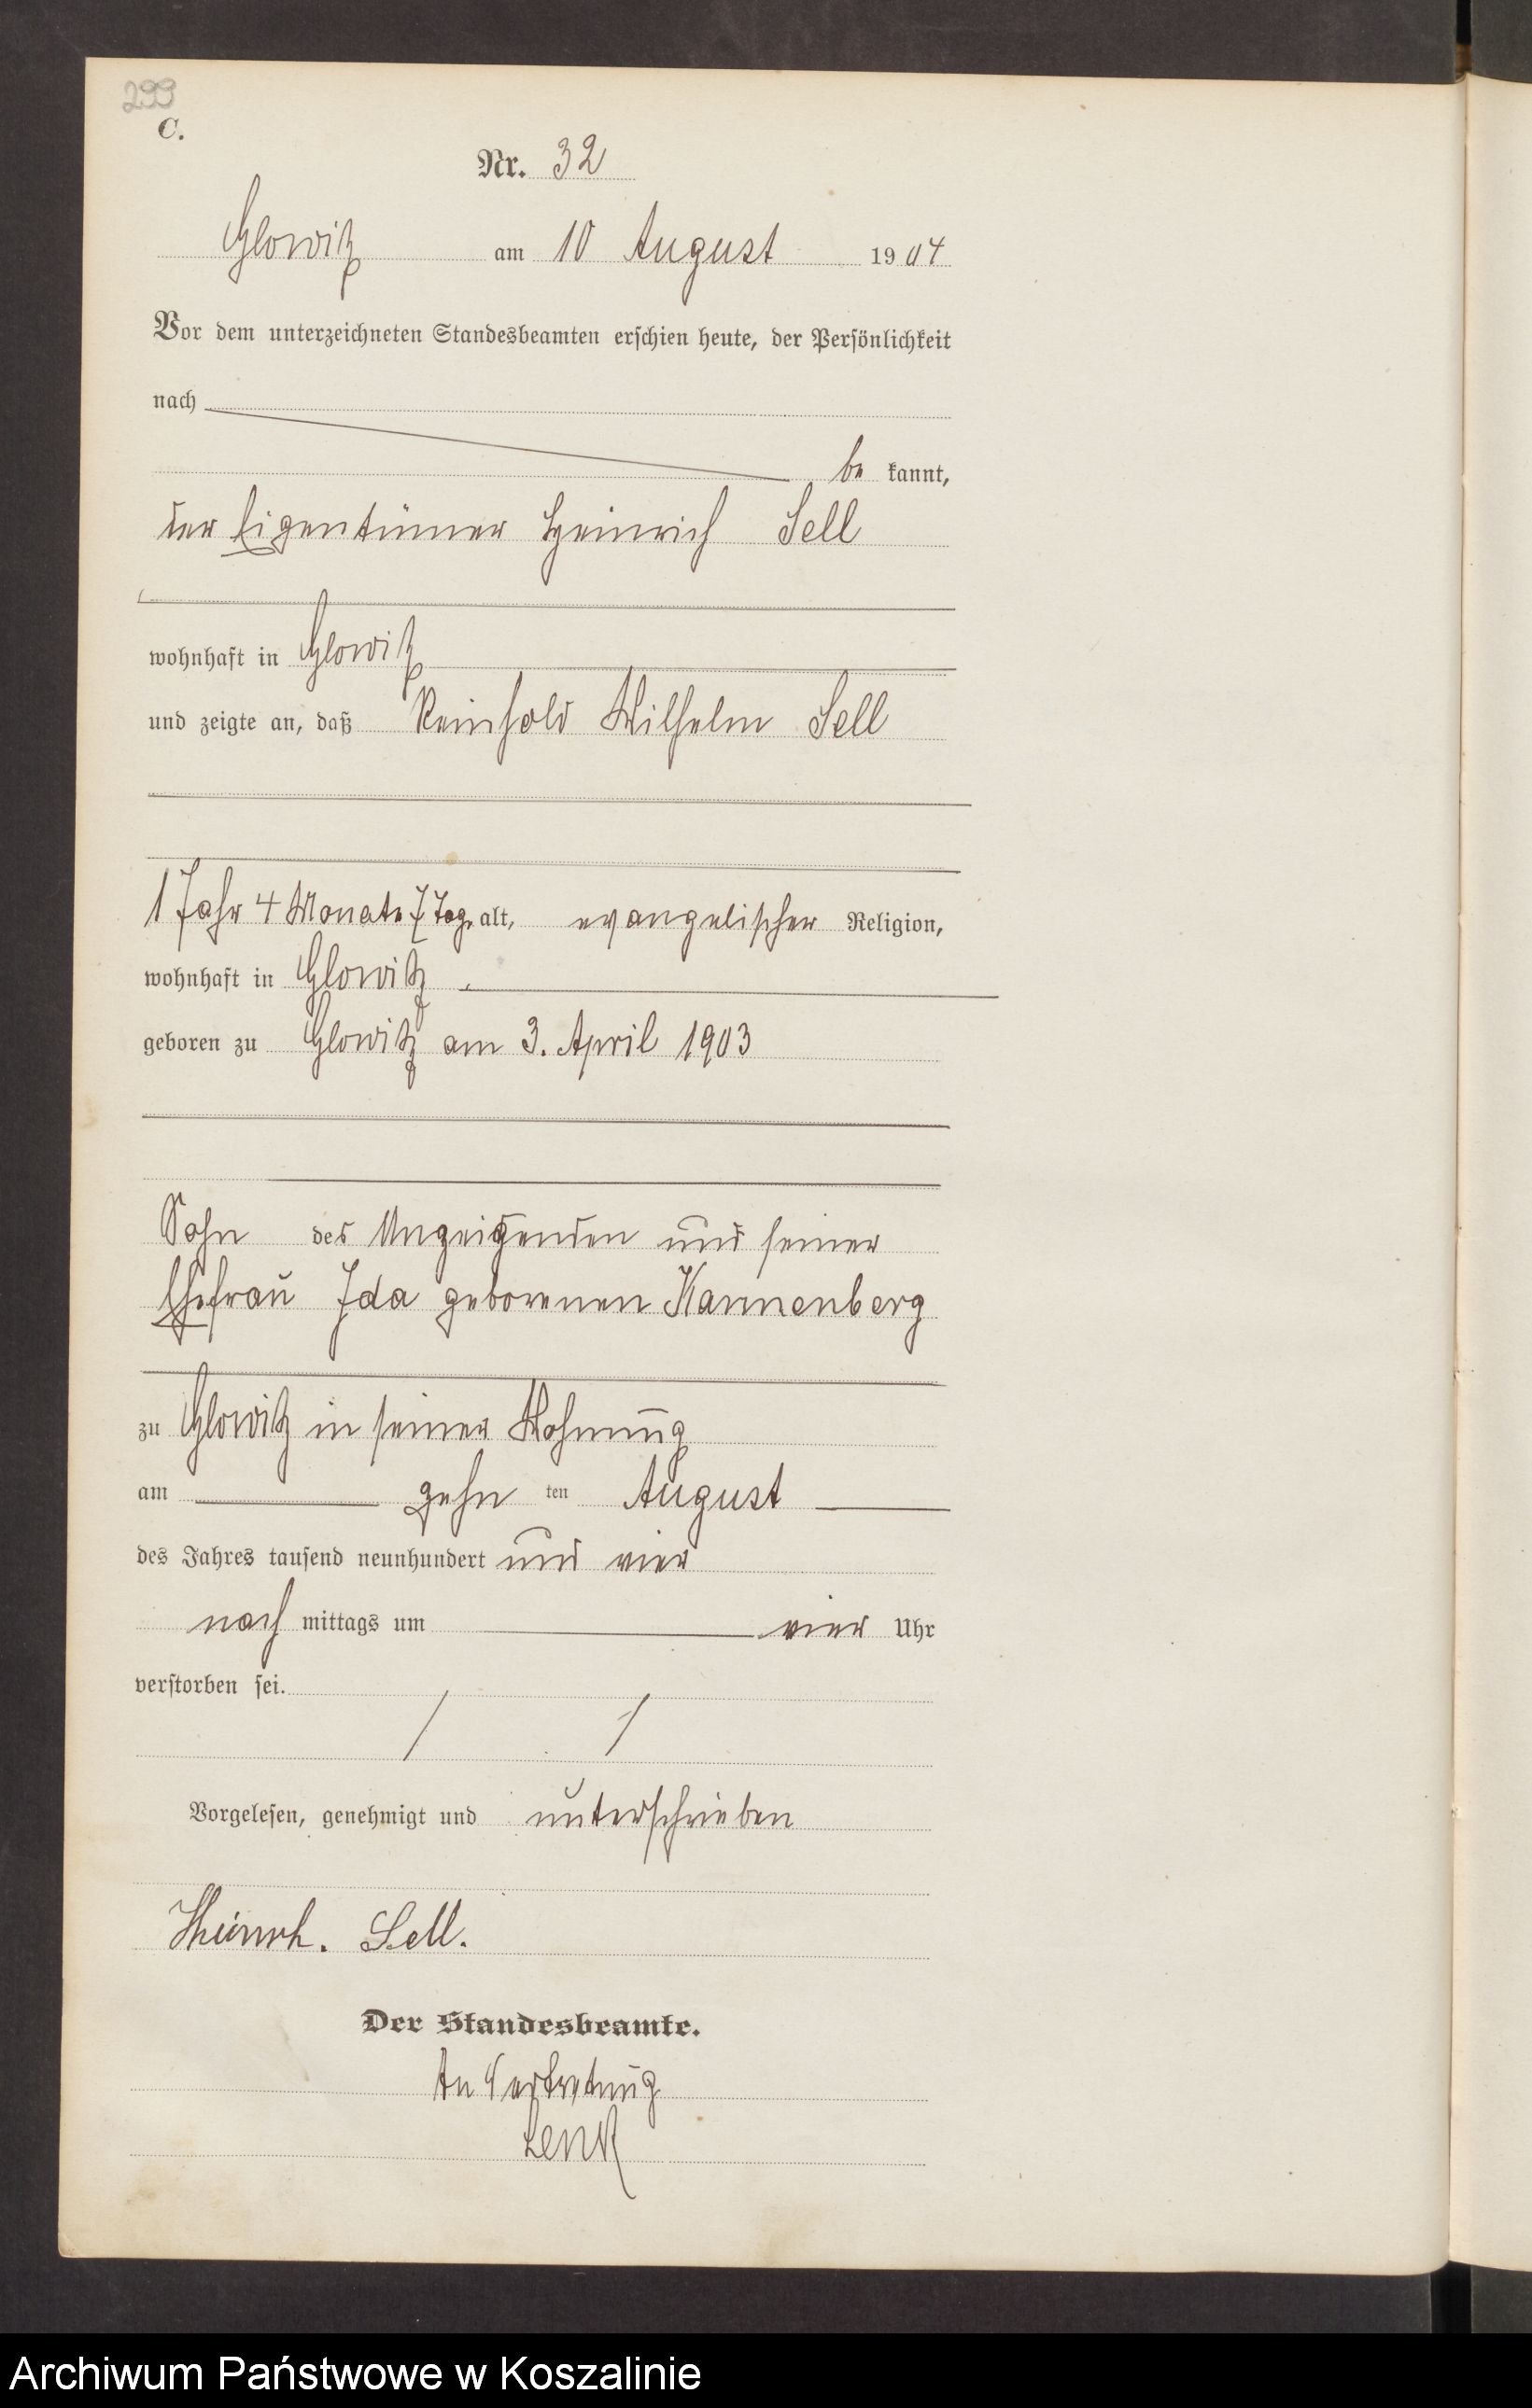 299
C.
Nr. 32
Glowitz am 10 August 1904
Vor dem unterzeichneten Standesbeamten erschien heute, der Persönlichkeit
nach
be kannt,
der Eigentümer Heinrich Sell
wohnhaft in Glowitz
und zeigte an, daß Reinhold Wilhelm Sell
1 Jahr 4 Monate 7 Tage alt, evangelischer Religion,
wohnhaft in Glowitz
geboren zu Glowitz am 3. April 1903
Sohn des Anzeigenden und seiner
Ehefrau Ida geborenen Kannenberg
zu Glowitz in seiner Wohnung
am zehn ten August
des Jahres tausend neunhundert und vier
nach mittags um vier Uhr
verstorben sei.
Vorgelesen, genehmigt und unterschrieben
Heinrh. Sell.
Der Standesbeamte.
In Vertretung
Lenk
Archiwum Państwowe w Koszalinie